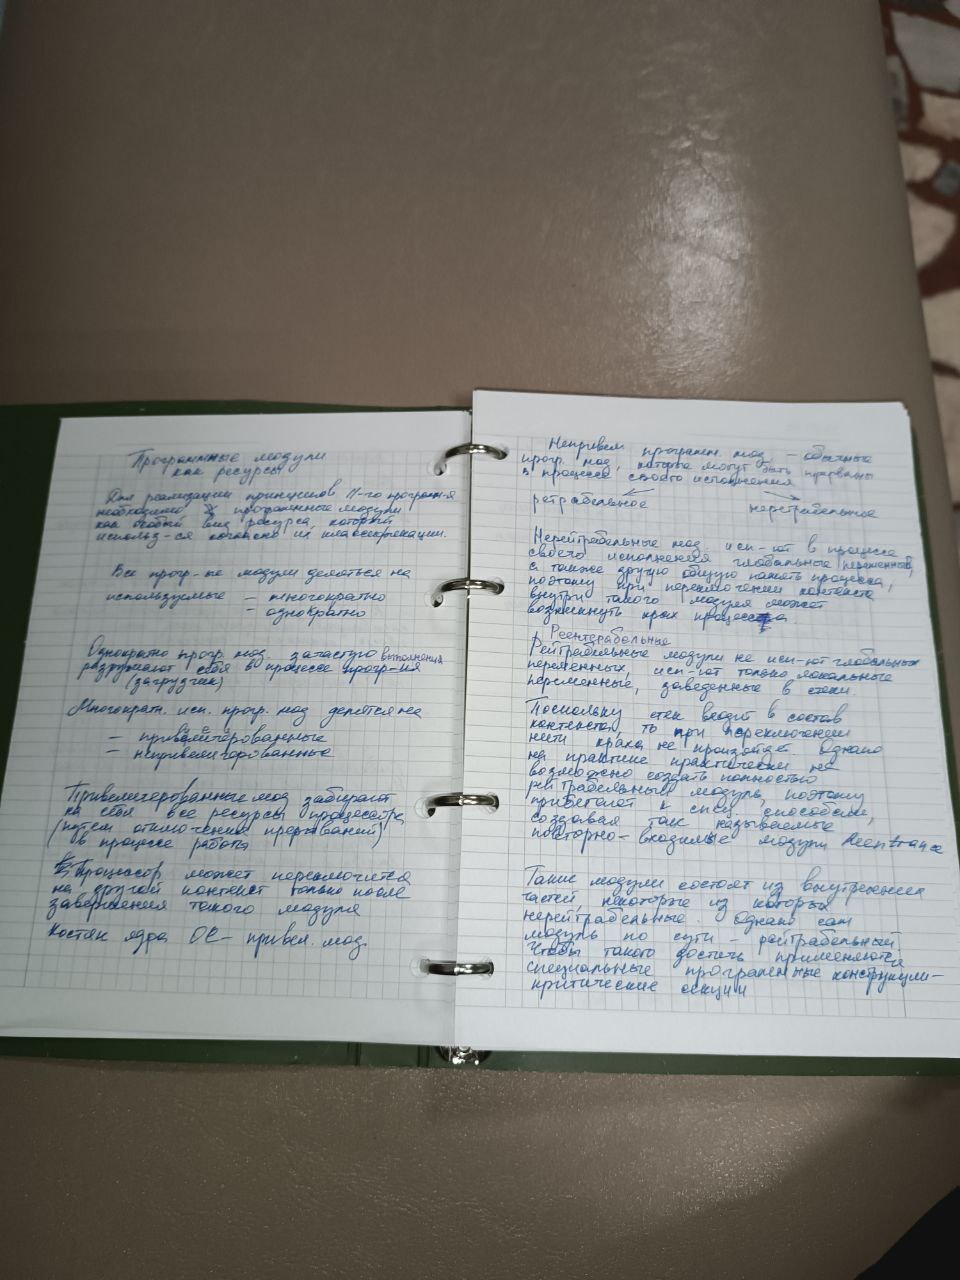 Программные модули
как ресурсы
Для реализации принципов М-го програм-я
необходимо программные модули
как особый вид ресурса, который
использ-ся согласно их классификации.
Все прогр-ые модули делятся на
используемые – многократно
– однократно
Однократно прогр. мод. зачастую выполнения
разрушают себя в процессе прогр-ия
(загрузчик)
Многократн. исп. прогр. мод делятся на
– привелигерованные
– непривелигерованные
Привелигерованные мод забирают
на себя все ресурсы процессора,
(путём отключения прерываний)
в процессе работы
Процессор может переключится
на другой контекст только после
завершения такого модуля
Костяк ядра ОС – привел. мод.
Непривел программ. мод. – обычные
прогр. мод, которые могут быть прерваны
в процессе своего исполнения
ретрабельное нерейтрабельные
Нерейтрабельные мод. исп-ют в процессе
своего исполнения глобальные переменные,
а также другую общую память процесса,
поэтому при переключении контекста
внутри такого модуля может
возникнуть крах процесса.
Реентерабельные
Рейтрабельные модули не исп-ют глобальных
переменных, исп-ют только локальные
переменные, заведенные в стеки.
Поскольку стек входит в состав
контекста, то при переключении
нити краха не произойдёт. Однако
на практике практически не
возможно создать полностью
рейтрабельный модуль, поэтому
прибегают к спец. способам,
создавая так называемые
повторно-входимые модули Reentrance
Такие модули состоят из внутренних
частей, некоторые из которых
нерейтрабельные. Однако сам
модуль по сути – рейтрабельный.
Чтобы такого достичь применяются
специальные программные конструкции –
критические секции